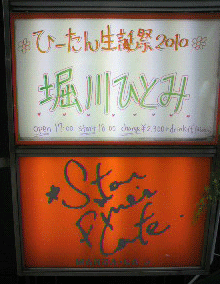 ひーたん生誕祭2010
堀川ひとみ
open 17:00 start 18:00 charge ¥2,500+drink
Star
Pine's
Cafe